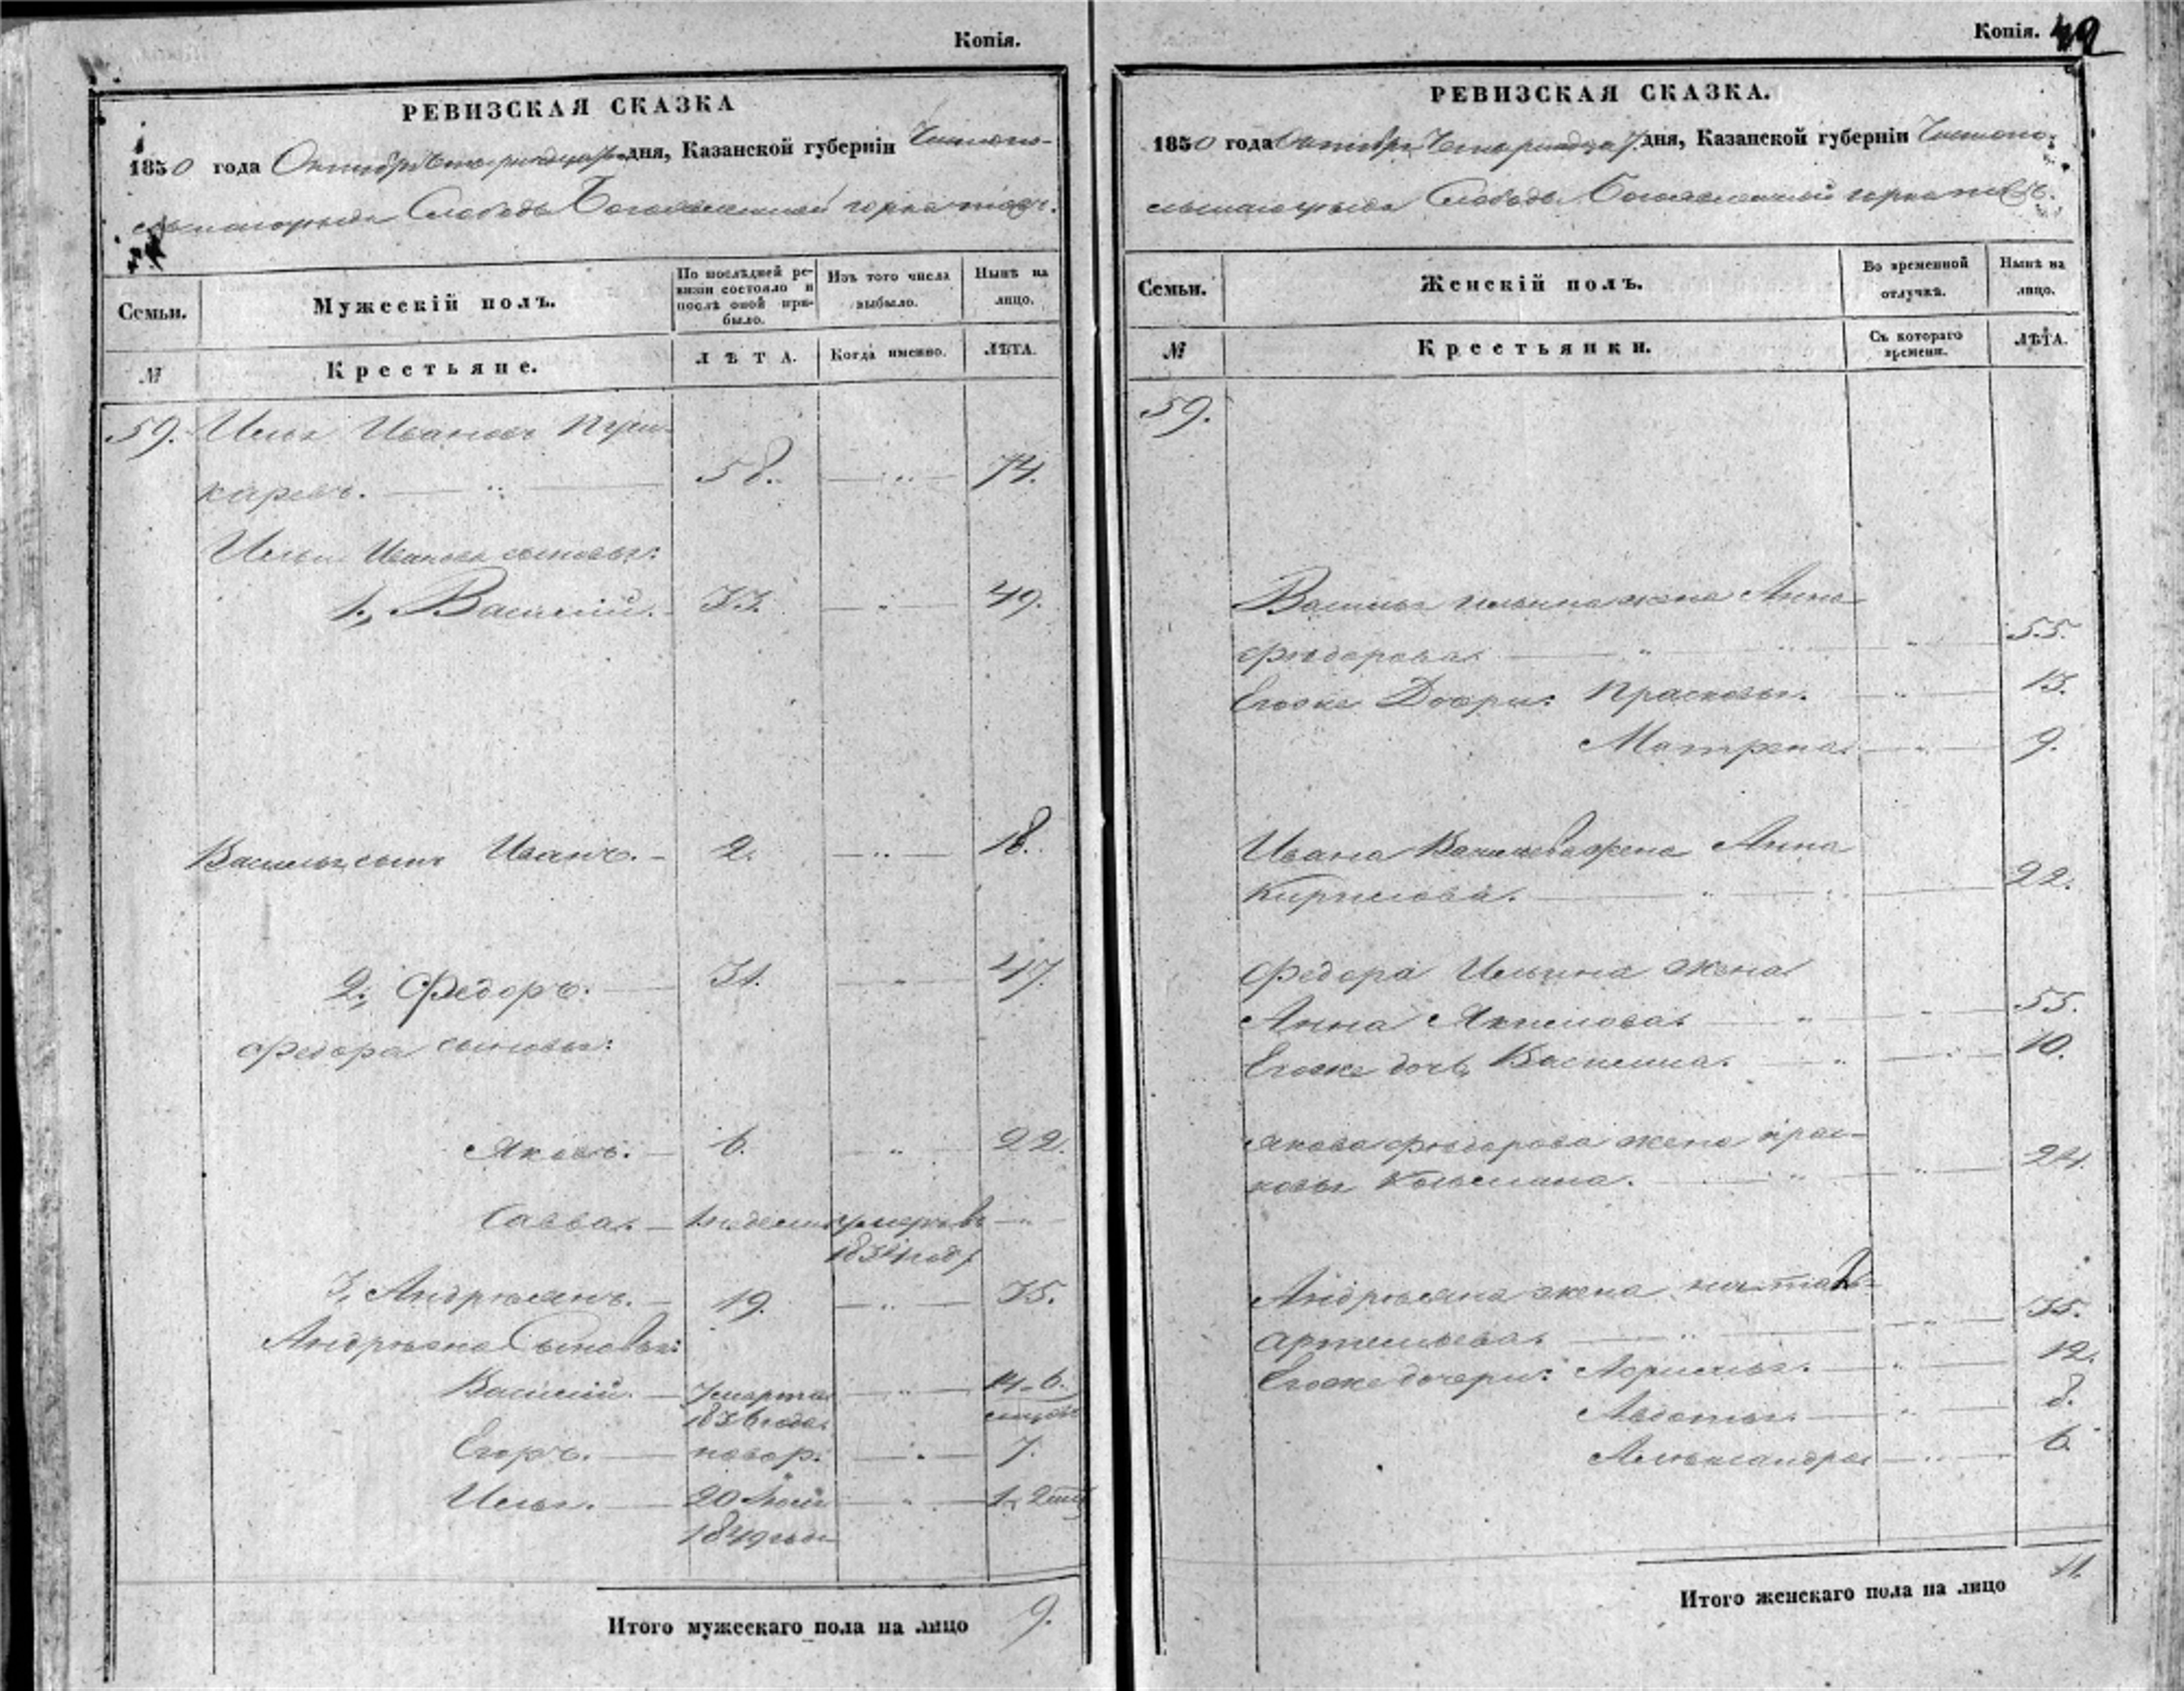 Копія.
РЕВИЗСКАЯ СКАЗКА
1850 года Октября дня, Казанской губерніи Чистопо-
Слободы Богоявленской горка тожъ.
Семьи.
Мужескій полъ.
По послѣдней ре-
визіи состояло и
послѣ оной при-
было.
Изъ того числа
выбыло.
Нынѣ на
лицо.
№
Крестьяне.
ЛѢТА.
Когда именно.
ЛѢТА.
59. Илья Ивановъ Пуш-
каревъ. 58. 74.
Ильи Иванова сыновья:
1., Василій. 33. 49.
Василья сынъ Иванъ. 2. 18.
2., Федоръ. 31. 47.
Федора сыновья:
Яковъ. 6. 22.
Савва. 1 недели умеръ въ
1834 году
3., Андреянъ. 19. 35.
Андреяна Сыновья:
Василій. 7 марта 14. 6.
1836 года месяцовъ
Егоръ. новор. 7.
Илья. 20 Июля 1. 2
1849 года
Итого мужескаго пола на лицо 9.
Копія. 49
РЕВИЗСКАЯ СКАЗКА.
1850 года Октября дня, Казанской губерніи Чистопо-
Слободы Богоявленской горка тожъ.
Семьи.
Женскій полъ.
Во временной
отлучкѣ.
Нынѣ на
лицо.
№
Крестьянки.
Съ котораго
времени.
ЛѢТА.
59.
Василья Ильина жена Анна
Федорова 55.
Егоже Дочери: Прасковья. 13.
Матрена 9.
Ивана Васильева жена Анна
Кирилова. 22.
Федора Ильина жена
Анна Якимова 55.
Егоже дочь Василиса. 10.
Якова Федорова жена Прас-
ковья Козьмина. 24.
Андреяна жена Наталья
Артемьева 35.
Егоже дочери: 12.
Авдотья. 8.
Александра 6.
Итого женскаго пола на лицо 11.